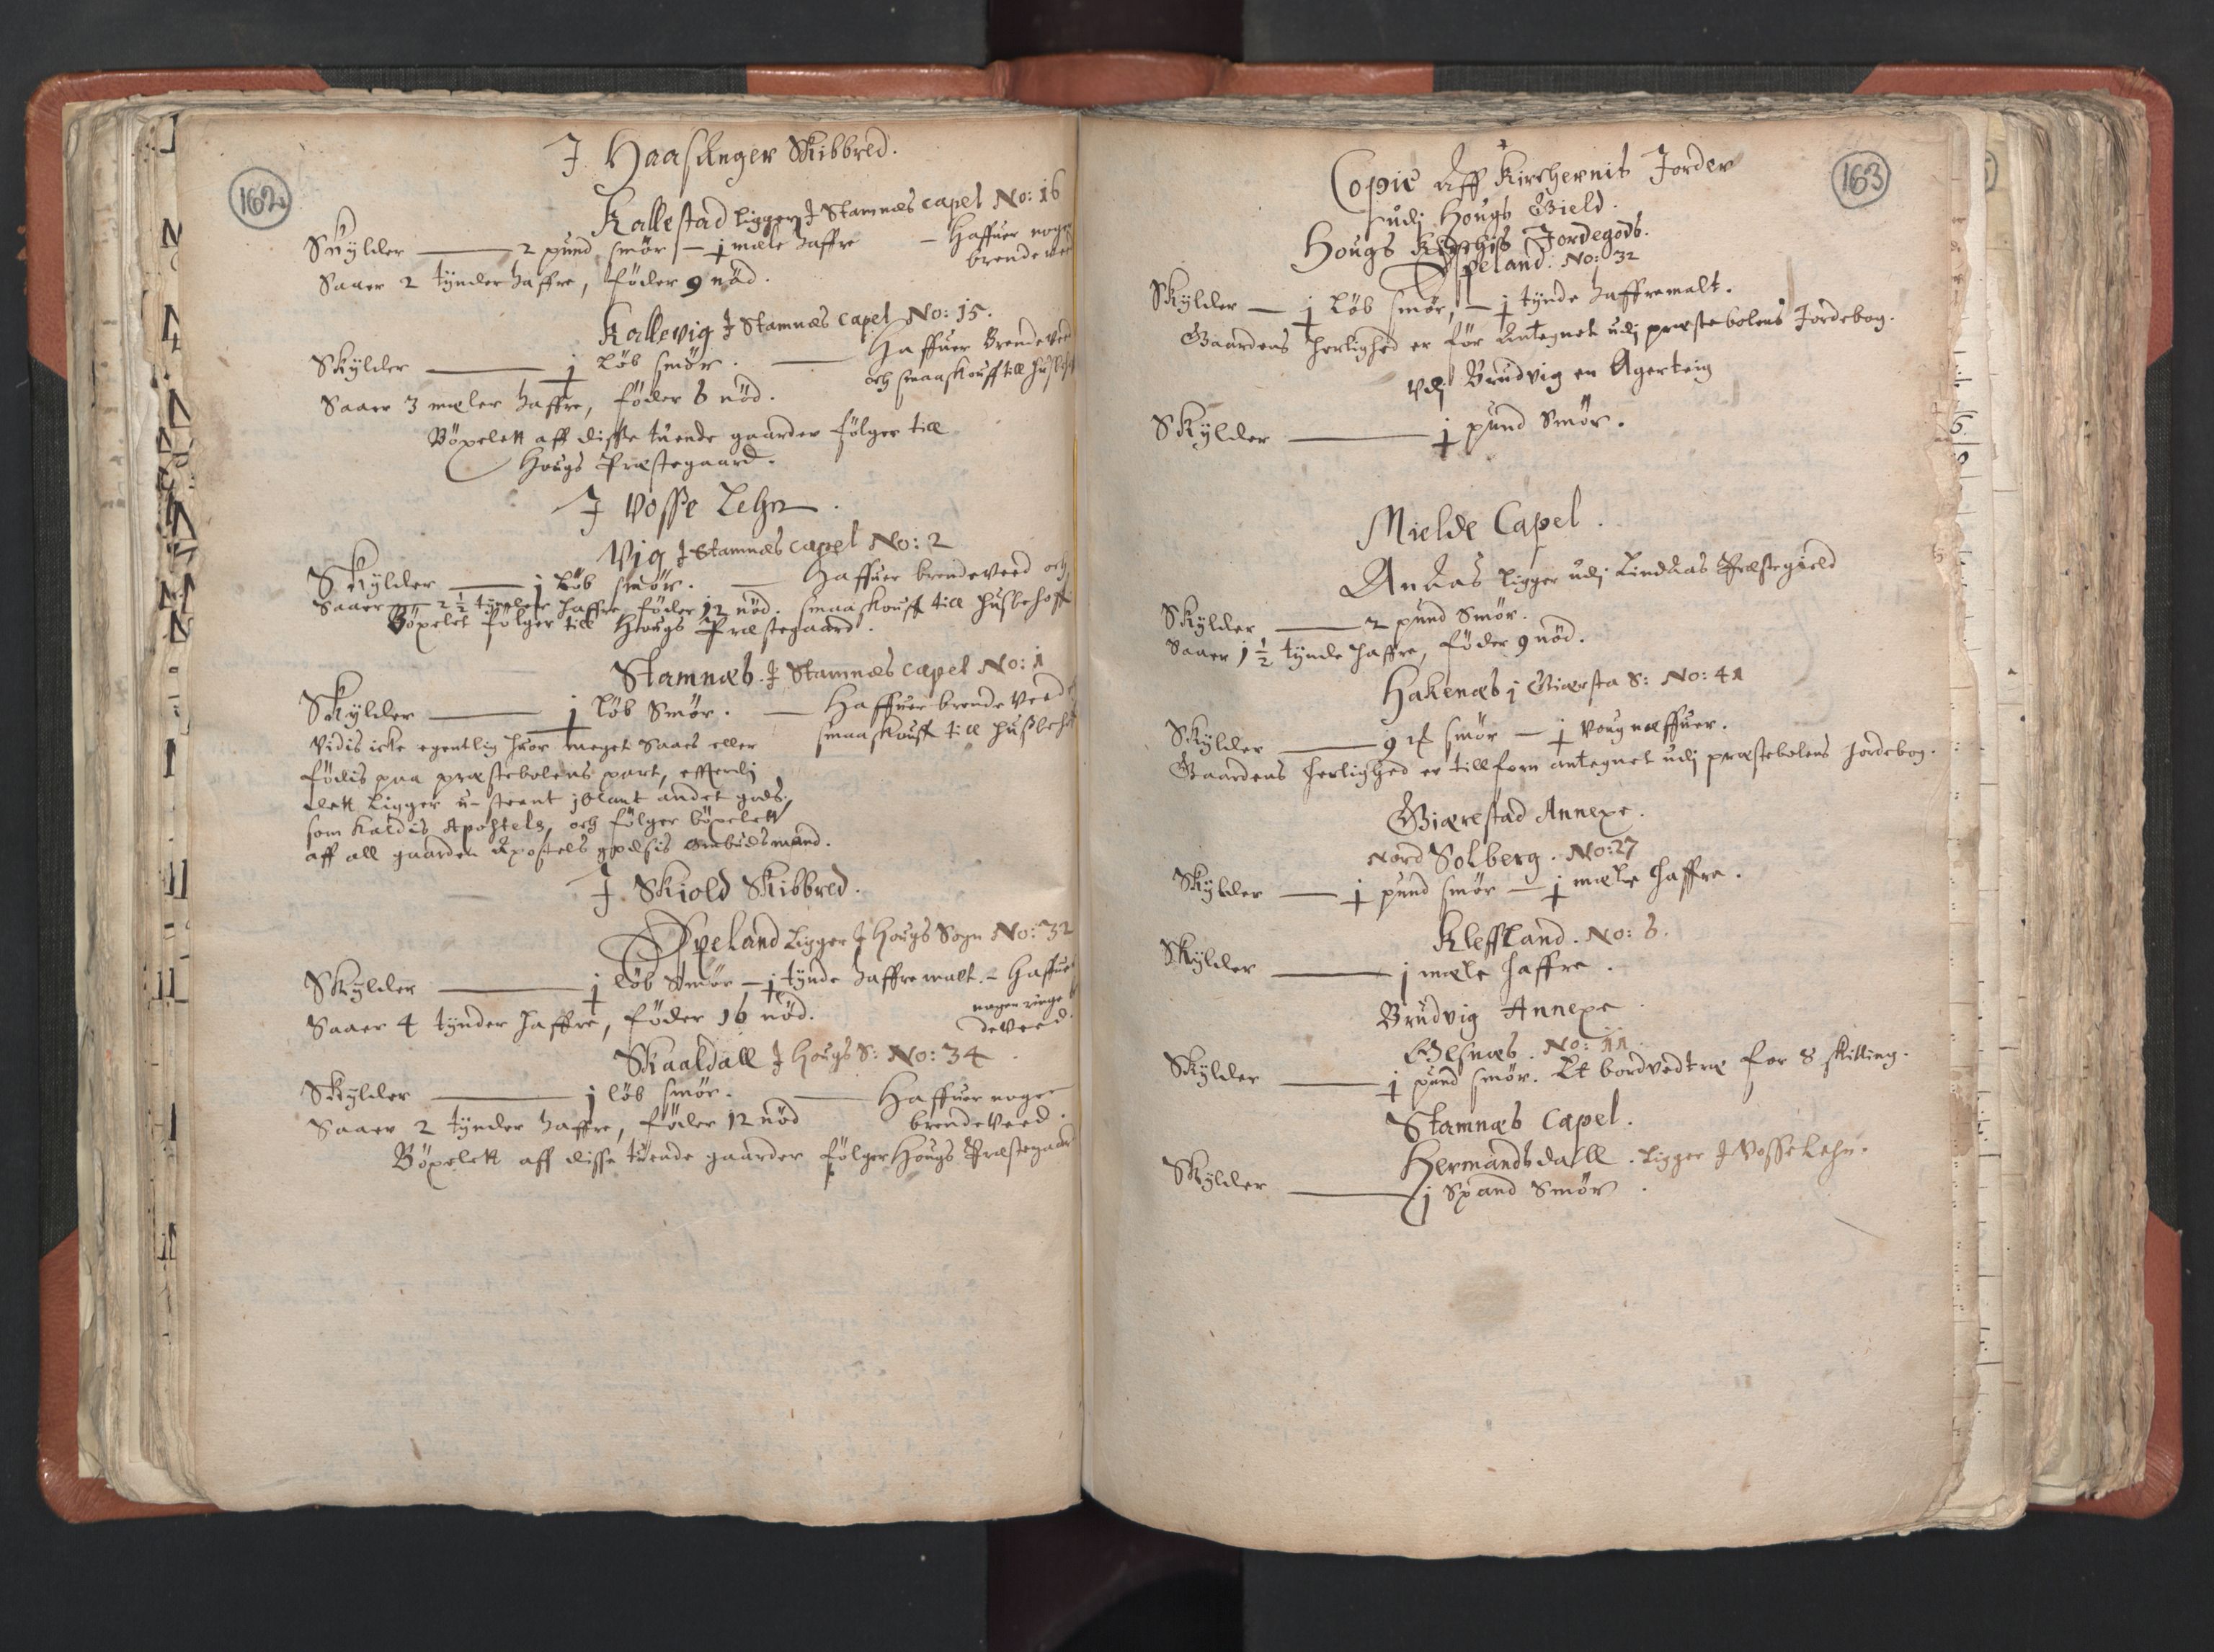 162
J Haasanger Skibbred.
Kallestad Ligger J Stamnæs Capel No: 16
Skylder 2 pund smør – j mæle haffre – Haffuer noger
brendeved
Saaer 2 tynder haffre, føder 9 nød.
Kallevig J Stamnæs Capel No: 15.
Skylder j Løb smør. Haffuer Brendeved
och smaaskouff till
Saaer 3 mæler haffre, føder 6 nød.
Böxelen aff disse tuende gaarder følger till
Hougs Præstegaard.
J Vosse Lehn.
Vig J Stamnæs Capel No: 2
Skylder j Løb smør. Haffuer brendeveed och
Saaer 2 1/2 haffre føder 12 nød. smaaskouff till husbehoff
Böxelet følger till Hougs Præstegaard.
Stamnæs. J Stamnæs Capel No: 1
Skylder j Løb Smør. Haffuer brendeveed
smaaskouff till husbeh
Vidis icke egentlig huor meget Saaes eller
födis paa præstebolens part, effterdj
dett Ligger u-steent jblant andet gods,
som Kaldis Apostels, och følger böxelen
aff all gaarden Apostels godsis ombudsmand.
J. Skiold Skibbred.
Ypeland Ligger J Hougs Sogn No: 32
Skylder j Løb Smør – j tynde haffremalt. – Haffuer
nogen ringe
deveed.
Saaer 4 tynder haffre, føder 16 nød.
Skaaldall J Hougs S: No: 34.
Skylder j Løb smør. Haffuer noger
brendeveed.
Saaer 2 tynder haffre, føder 12 nød
Böxelen aff disse tuende gaarder følger Hougs Præstegaar
163
Copie Aff Kirchernis Jorder
udj Hougs Gield.
Hougs Kirchis Jordegods.
Ypeland. No: 32
Skylder – j Løb smør, – j tynde haffremalt.
Gaardens herlighed er før Antegnet udj præstebolens Jordebog.
Vdj Brudvig en Agerteig
Skylder j pund Smør.
Mielde Capel.
Andaas Ligger udj Lindaas Præstegield
Skylder 2 pund Smør.
Saaer 1 1/2 tynde haffre, føder 9 nød.
Hakenæs j Giæresta S: No: 41
Skylder 9 smør – j voug næffuer.
Gaardens herlighed er tillforn antegnet udj præstebolens Jordebog.
Giærestad Annexe.
Nord Solberg. No: 27
Skylder j pund smør – j mæle haffre.
Kleffland. No: 6.
Skylder j mæle haffre.
Brudvig Annexe
Olsnæs. No: 11.
Skylder j pund smør. Et bordvedtræ for 8 skilling.
Stamnæs Capel.
Hermandsdalle. Ligger J Vosse Lehn.
Skylder j Spand Smør.